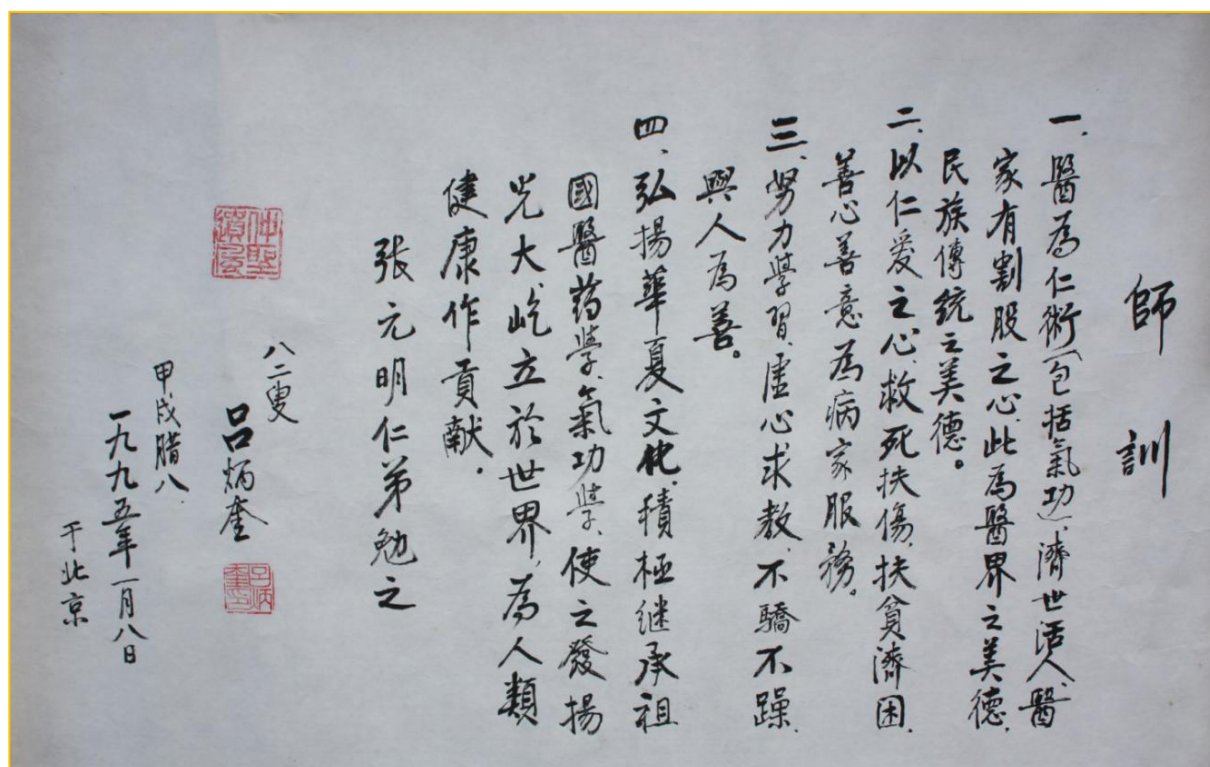 師訓
一、醫為仁術（包括氣功），濟世活人，醫
家有割股之心，此為醫界之美德，
民族傳統之美德。
二、以仁愛之心，救死扶傷，扶貧濟困，
善心善意為病家服務。
三、努力學習，虛心求教，不驕不躁，
與人為善。
四、弘揚華夏文化，積極继承祖
國醫药學、氣功學，使之發揚
光大，屹立於世界，為人類
健康作貢献。
张元明仁弟勉之
八二叟
吕炳奎
甲戌腊八
一九九五年一月八日
于北京